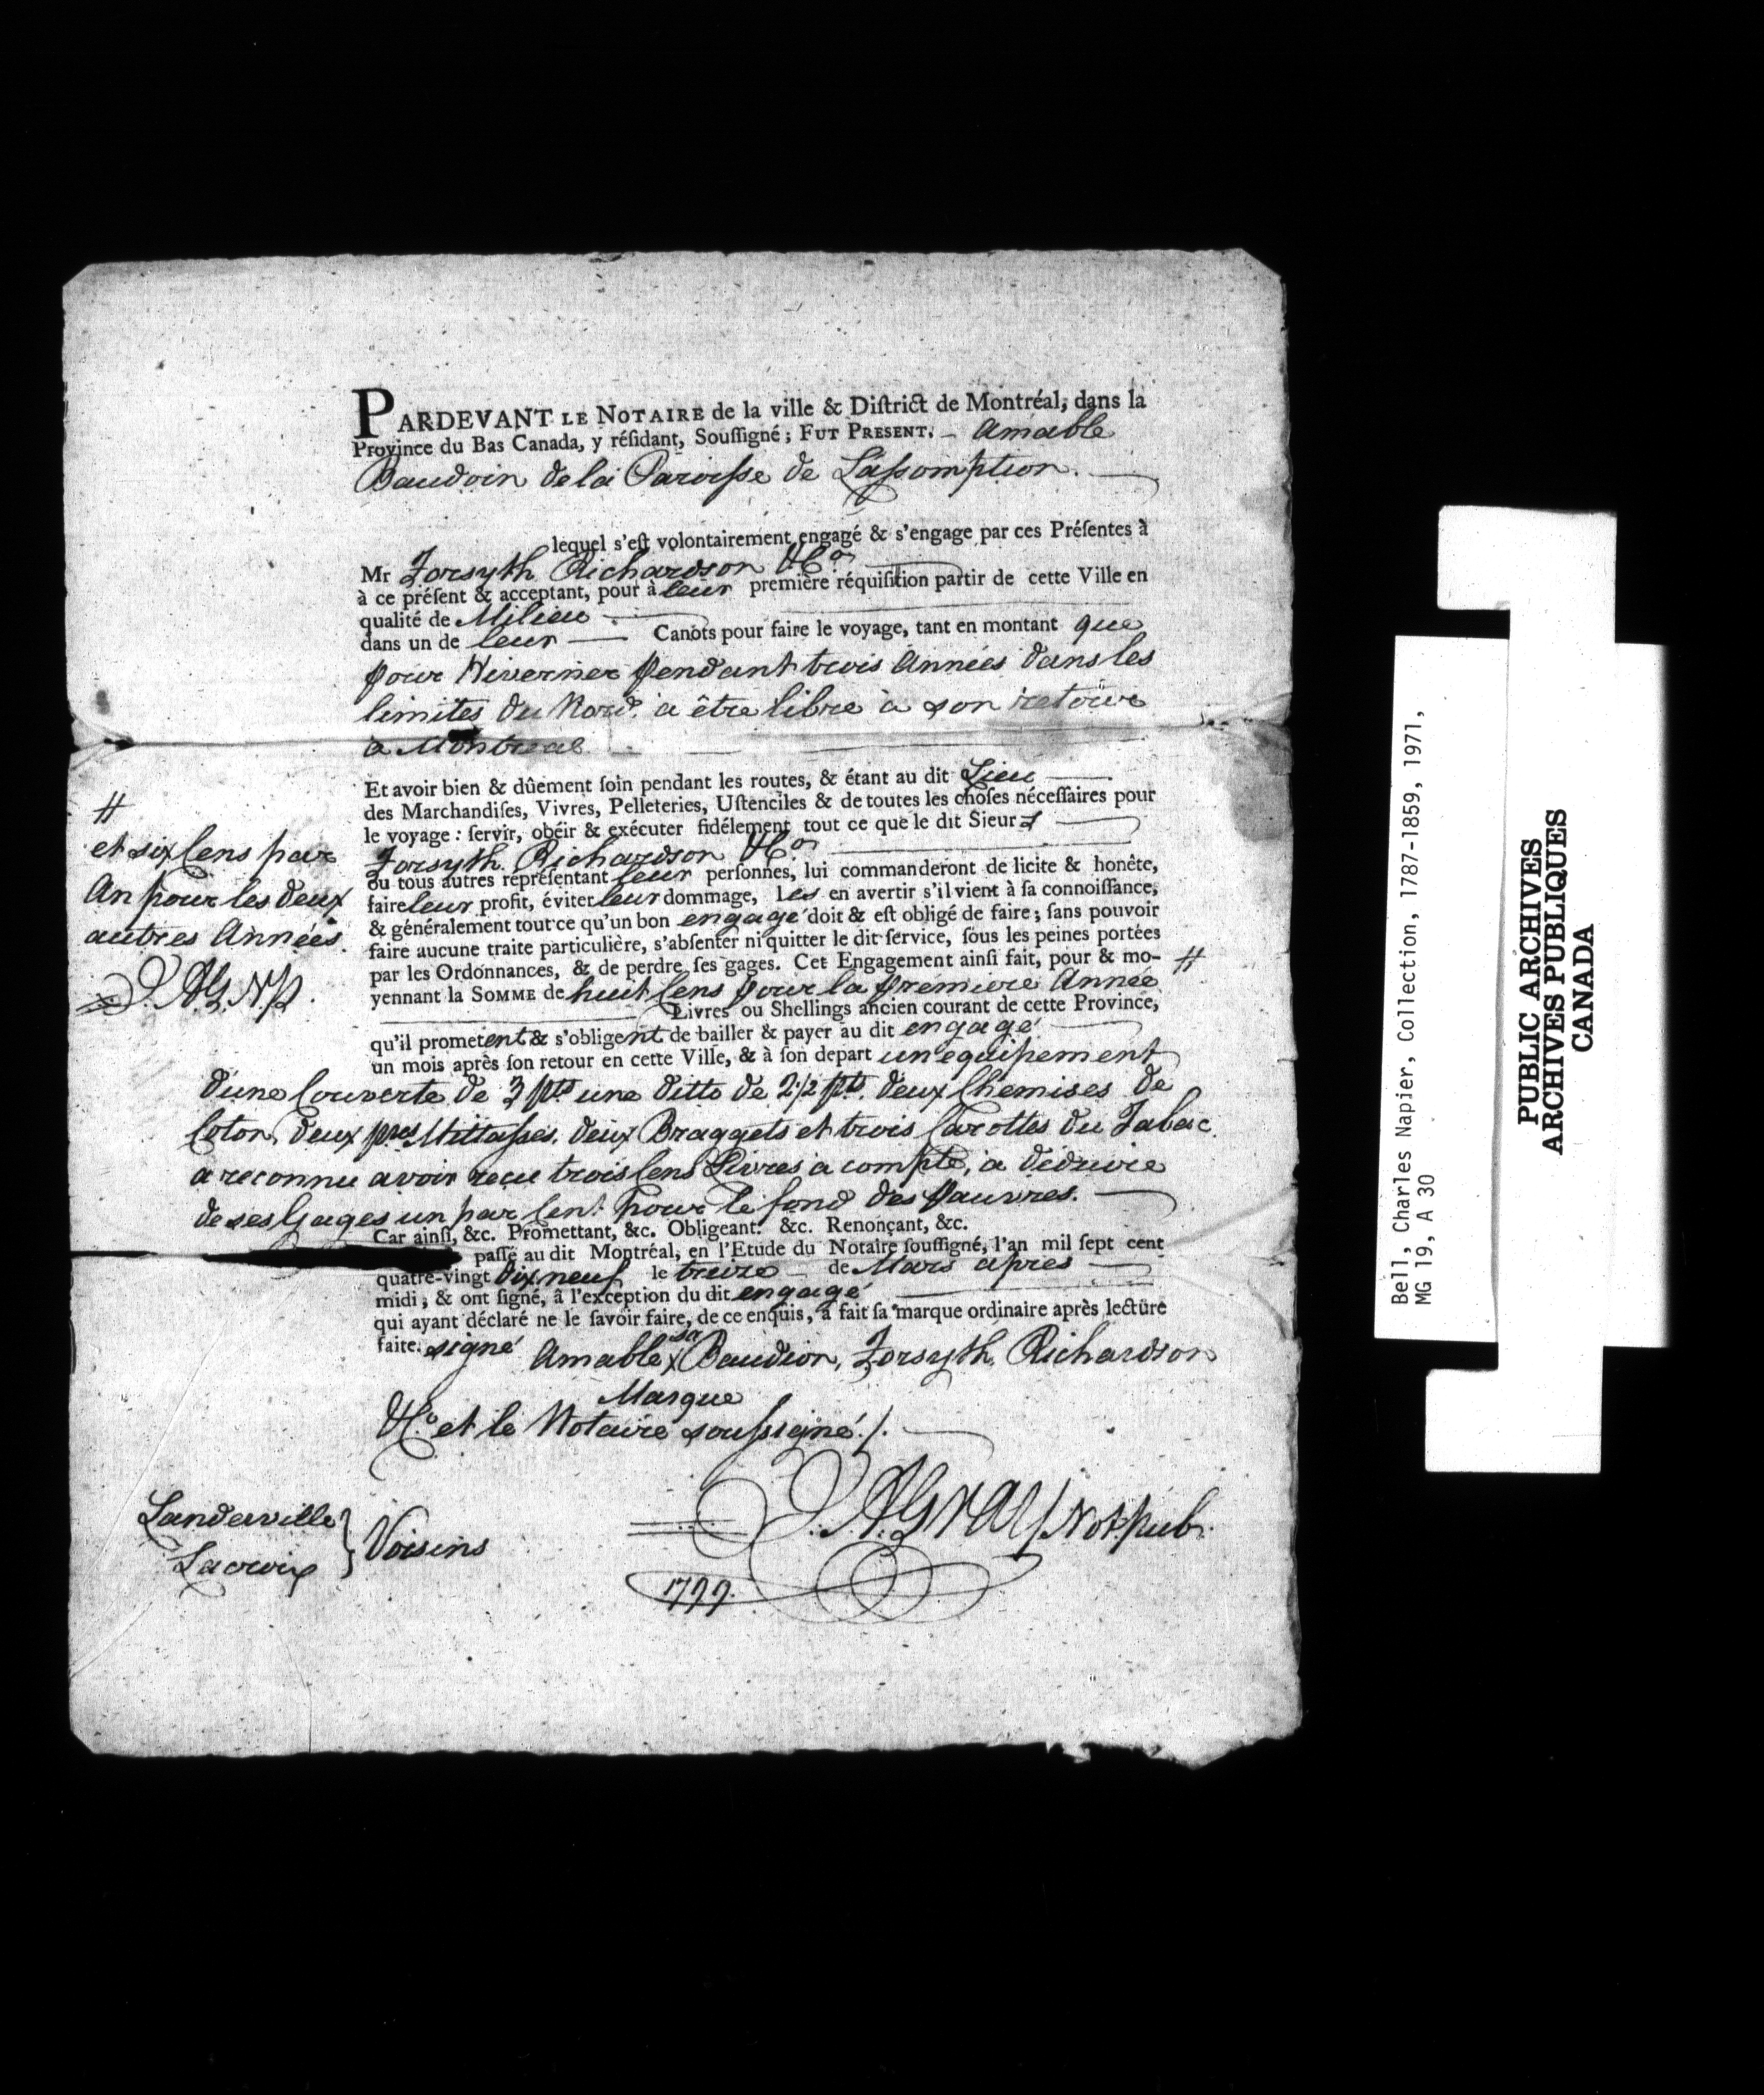 PARDEVANT LE NOTAIRE de la ville & Diſtrict de Montréal, dans la
Province du Bas Canada, y réſidant, Souſſigné ; FUT PRESENT. - Amable
Baudoin de la Paroisse de L'assomption.
lequel s'eſt volontairement engagé & s'engage par ces Préſentes à
Mr Forsyth Richardson & Co
à ce préſent & acceptant, pour à leur première réquiſition partir de cette Ville en
qualité de Milieu
dans un de leur Canots pour faire le voyage, tant en montant que
pour Hiverner pendant trois Années dans les
limites du Nord. a être libre à son retour
a Montreal
Et avoir bien & dûement ſoin pendant les routes, & étant au dit Lieu
des Marchandiſes, Vivres, Pelleteries, Uſtenciles & de toutes les choſes néceſſaires pour
le voyage : ſervir, obéir & exécuter fidélement tout ce que le dit Sieur s
Forsyth Richardson & Co
ou tous autres repréſentant leur perſonnes, lui commanderont de licite & honête,
faire leur profit, éviter leur dommage, les en avertir s'il vient à ſa connoiſſance,
& généralement tout ce qu'un bon engagé doit & eſt obligé de faire ; ſans pouvoir
faire aucune traite particulière, s'abſenter ni quitter le dit ſervice, ſous les peines portées
par les Ordonnances, & de perdre ſes gages. Cet Engagement ainſi fait, pour & mo- #
yennant la SOMME de huit Cens pour la premiere Année
Livres ou Shellings ancien courant de cette Province,
qu'il prometent & s'obligent de bailler & payer au dit engagé
un mois après ſon retour en cette Ville, & à ſon depart un equipement
d'une Couverte de 3 pts une ditto de 2½ pts. deux Chemises de
Coton, deux pres Mittasses. deux Braggets et trois Carottes du Tabac.
a reconnu avoir reçu trois Cens Livres a compte, a déduire
de ses Gages un par Cent Pour le fond des Pauvres.
Car ainſi, &c. Promettant, &c. Obligeant. &c. Renonçant, &c.
paſſé au dit Montréal, en l'Etude du Notaire ſouſſigné, l'an mil ſept cent
quatre-vingt dix neuf le treize de Mars apres
midi, & ont ſigné, à l'exception du dit engagé
qui ayant déclaré ne le ſavoir faire, de ce enquis, a fait ſa marque ordinaire après lecture
faite. signé Amable sa x Baudion, Forsyth, Richardson
Marque
& Co et le Notaire soussigné./.
J. A. Gray Not. pub.
1799.
#
et six Cens par
An pour les deux
autres Années.
J. A. G. N. P.
Landerville
Lacroix } Voisins
Bell, Charles Napier, Collection, 1787-1859, 1971,
MG 19, A 30
PUBLIC ARCHIVES
ARCHIVES PUBLIQUES
CANADA